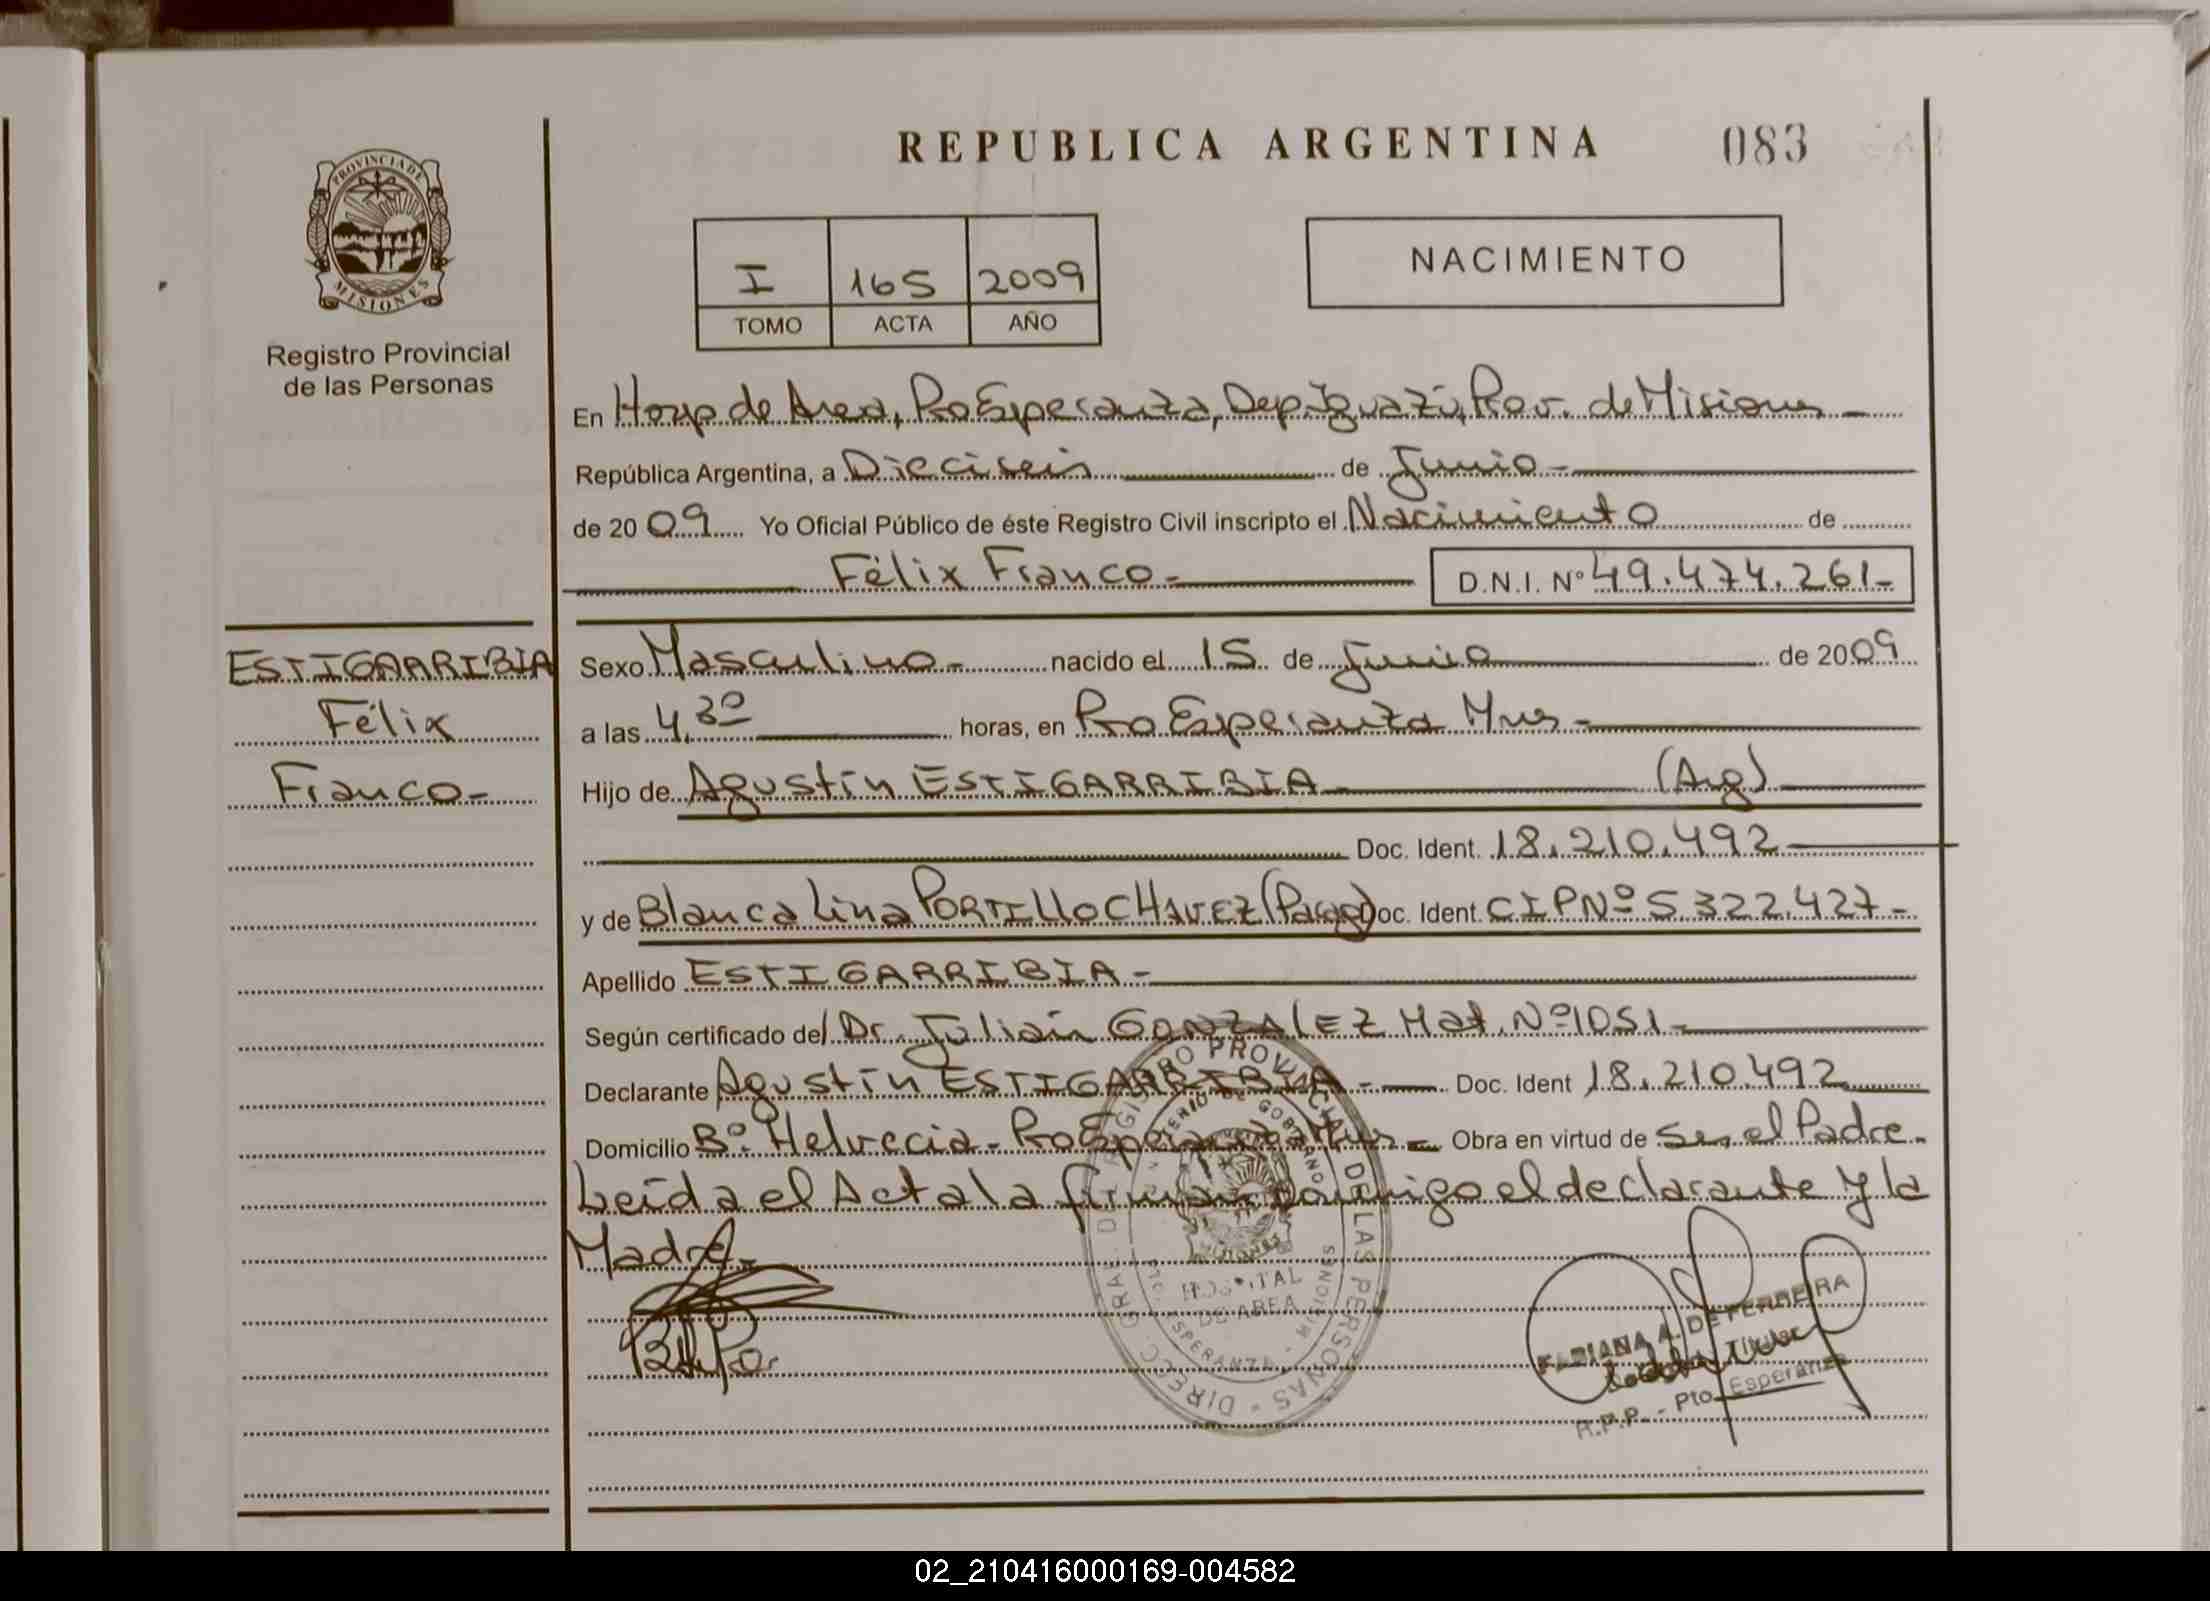 REPUBLICA ARGENTINA 083
PROVINCIA DE
MISIONES
Registro Provincial
de las Personas
I 165 2009
TOMO ACTA AÑO
NACIMIENTO
En Hosp de Area, Pto Esperanza, Dep. Iguazú, Prov. de Misiones
República Argentina, a Dieciseis de Junio
de 2009 Yo Oficial Público de éste Registro Civil inscripto el Nacimiento de
Félix Franco D.N.I. Nº 49.474.261
ESTIGARRIBIA
Félix
Franco
Sexo Masculino nacido el 15 de Junio de 2009
a las 4,30 horas, en Pto Esperanza Mnes
Hijo de Agustín ESTIGARRIBIA (Arg)
Doc. Ident. 18.210.492
y de Blanca Lina PORTILLO CHAVEZ (Parag) Doc. Ident. CIPNº 5.322.427
Apellido ESTIGARRIBIA
Según certificado del Dr. Julián GONZALEZ Mat. Nº 1051
Declarante Agustín ESTIGARRIBIA Doc. Ident 18.210.492
Domicilio Bº. Helvecia - Pto Esperanza Mnes Obra en virtud de Ser el Padre
Leída el Acta la firman conmigo el declarante y la
Madre
DIRECC. GRAL. DEL REGISTRO PROVINCIAL DE LAS PERSONAS
HOSPITAL
DE AREA
ESPERANZA - MISIONES
FABIANA A. DE FERREIRA
Titular
R.P.P. - Pto. Esperanza
02_210416000169-004582